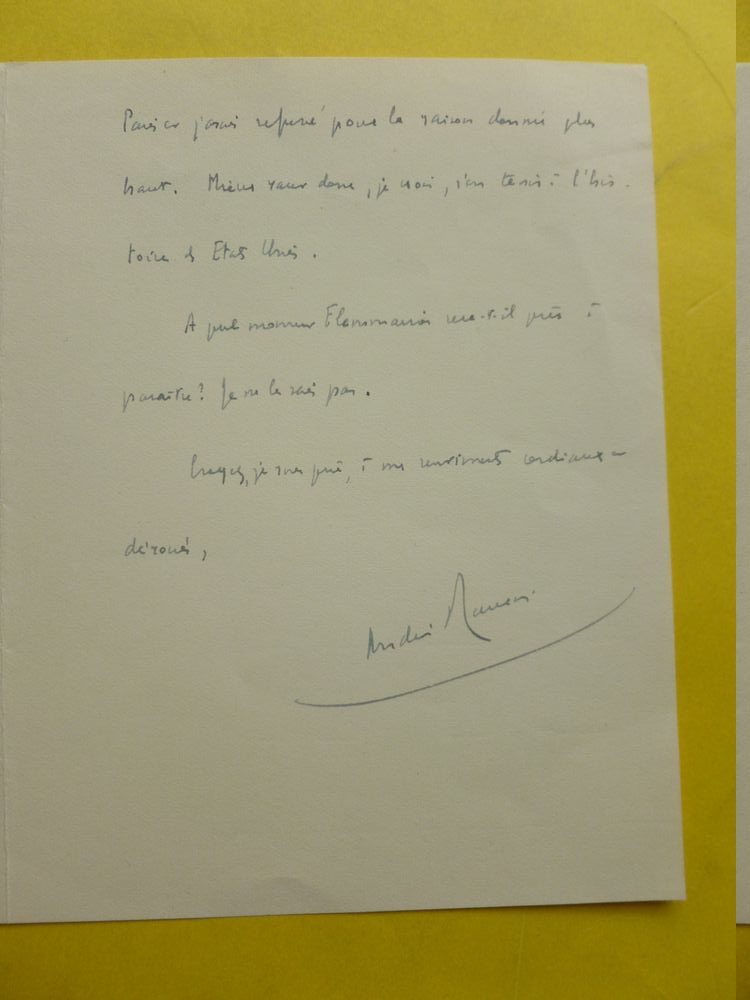 j'avais refusé pour la raison donnée plus
haut. Mieux vaut donc, je crois, s'en tenir à l'his-
toire des Etats Unis.
A quel moment Flammarion sera-t-il prêt à
paraître? Je ne le sais pas.
Croyez, je vous prie, à mes sentiments cordiaux -
dévoués,
André Maurois